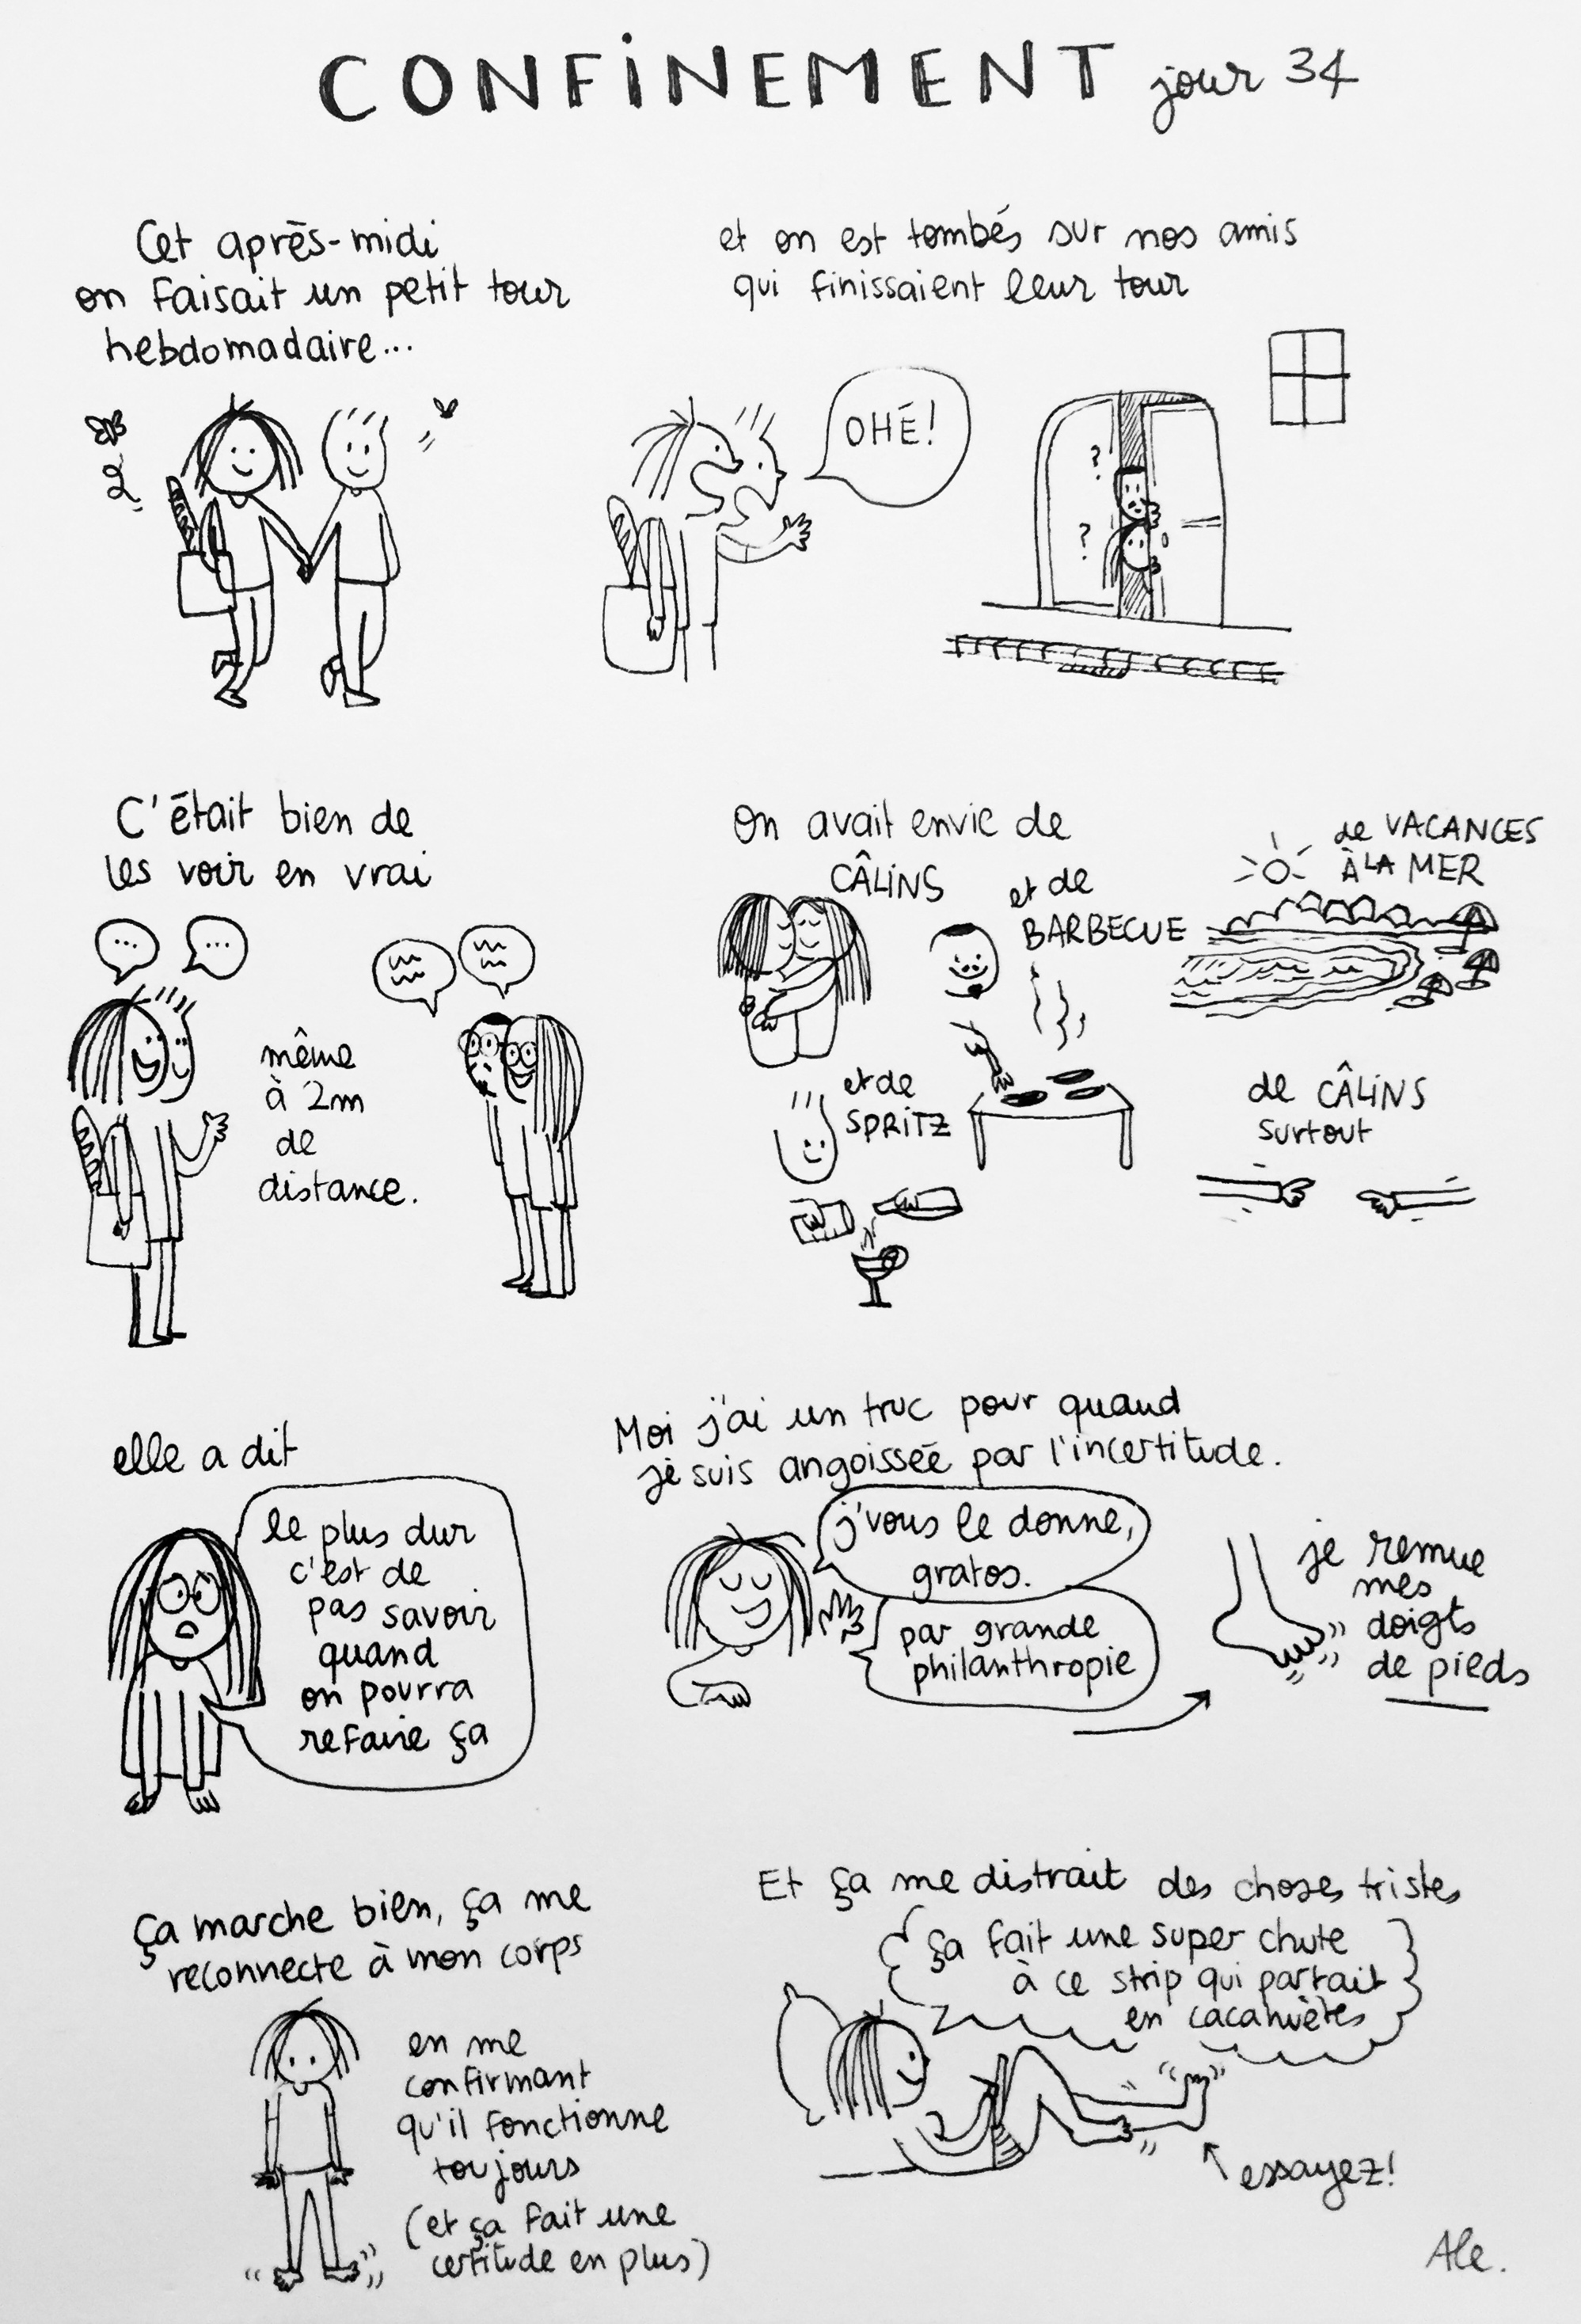 CONFiNEMENT jour 34
Cet après-midi
on faisait un petit tour
hebdomadaire...
et on est tombés sur nos amis
qui finissaient leur tour
OHÉ!
?
?
C'était bien de
les voir en vrai
...
...
même
à 2m
de
distance.
On avait envie de
CÂLiNS
et de
BARBECUE
de VACANCES
À LA MER
et de
SPRiTZ
de CÂLiNS
surtout
elle a dit
le plus dur
c'est de
pas savoir
quand
on pourra
refaire ça
Moi j'ai un truc pour quand
je suis angoissée par l'incertitude.
j'vous le donne,
gratos.
par grande
philanthropie
je remue
mes
doigts
de pieds
ça marche bien, ça me
reconnecte à mon corps
en me
confirmant
qu'il fonctionne
toujours
(et ça fait une
certitude en plus)
Et ça me distrait des choses tristes
ça fait une super chute
à ce strip qui partait
en cacahuètes
essayez!
Ale.